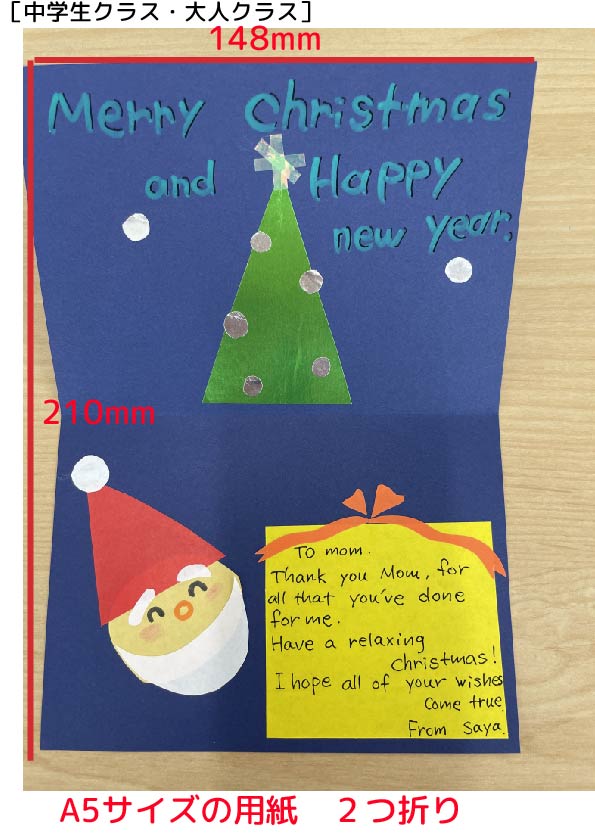 ［中学生クラス・大人クラス］
148mm
Merry Christmas
and Happy
new year.
210mm
To mom.
Thank you Mom, for
all that you've done
for me.
Have a relaxing
Christmas!
I hope all of your wishes
Come true
From Saya.
A5サイズの用紙　２つ折り